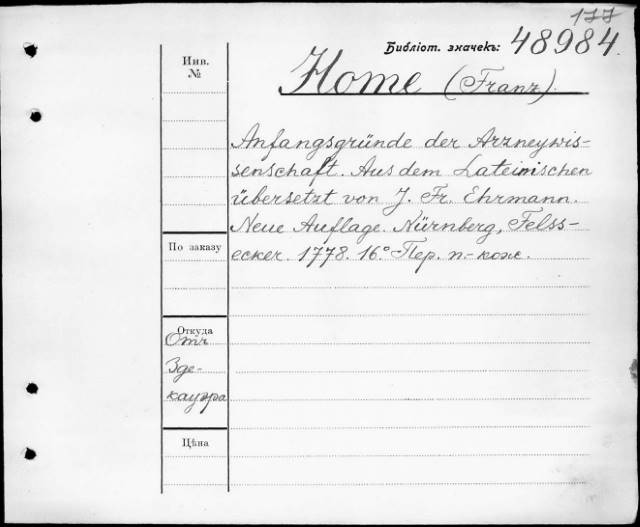 177
Библіот. значекъ: 48984.
Инв.
№
Home (Franz).
Anfangsgründe der Arzneywis-
senschaft. Aus dem Lateinischen
übersetzt von J. Fr. Ehrmann.
Neue Auflage. Nürnberg, Felss-
ecker. 1778. 16° Пер. п.-кож.
По заказу
Откуда
Отъ
Зде-
кауэра
Цѣна